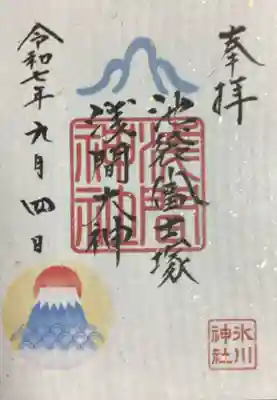 奉拝
池袋富士塚
浅間大神
令和七年九月四日
浅間神社
氷川神社